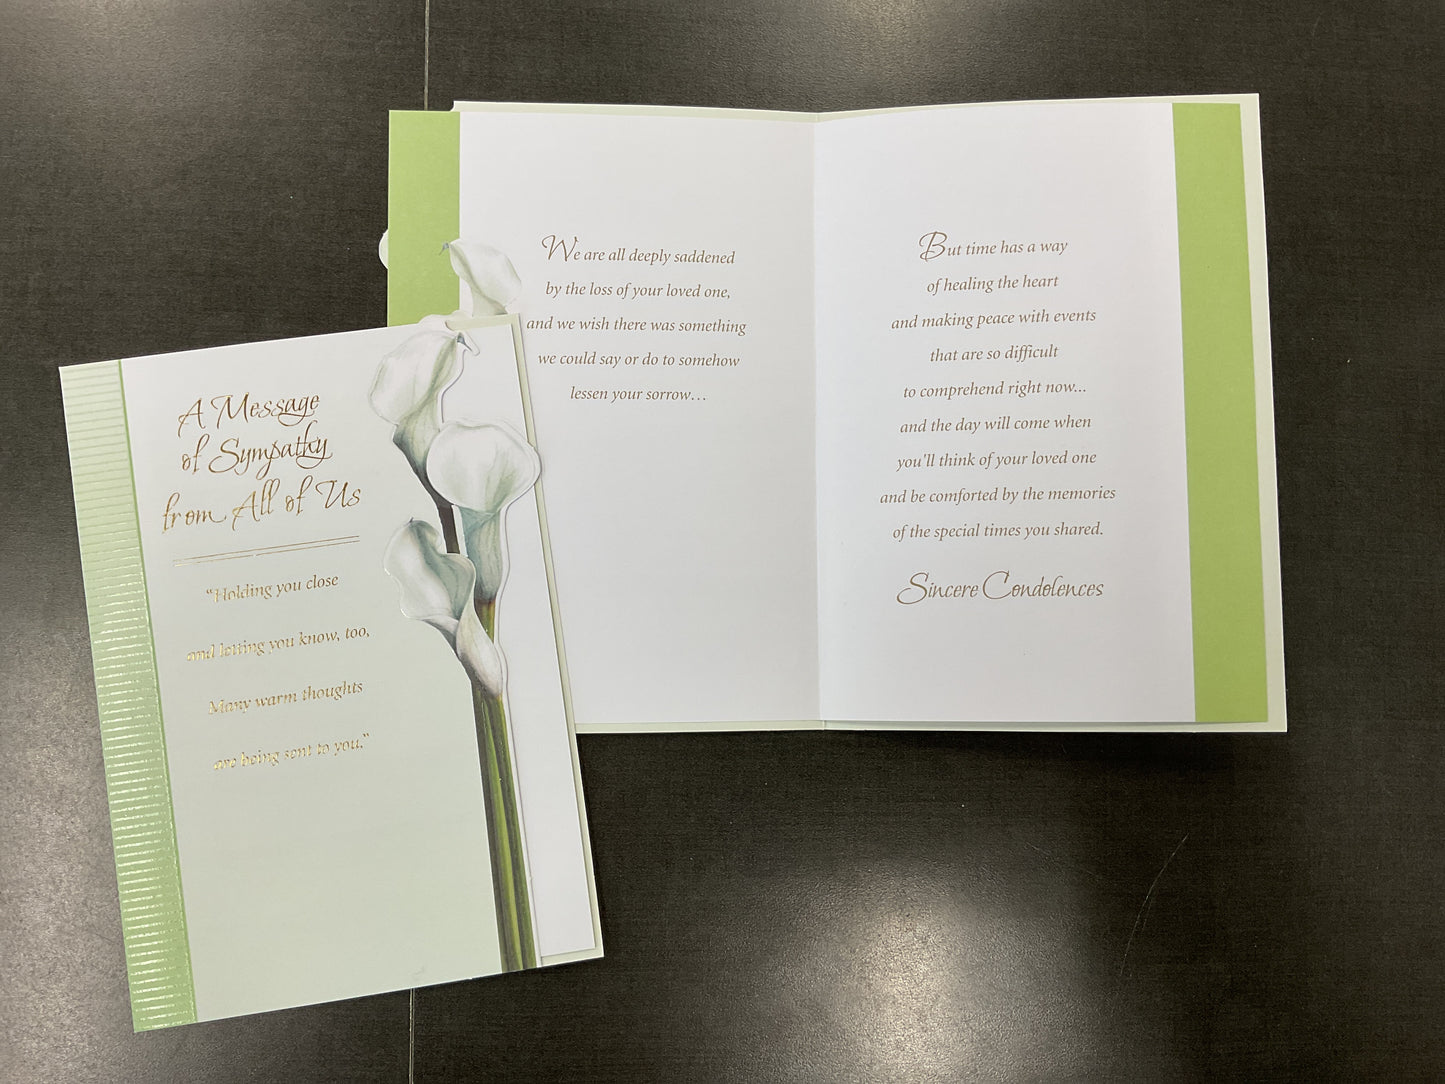 A Message
of Sympathy
from All of Us
“Holding you close
and letting you know, too,
Many warm thoughts
are being sent to you.”
We are all deeply saddened
by the loss of your loved one,
and we wish there was something
we could say or do to somehow
lessen your sorrow…
But time has a way
of healing the heart
and making peace with events
that are so difficult
to comprehend right now...
and the day will come when
you'll think of your loved one
and be comforted by the memories
of the special times you shared.
Sincere Condolences